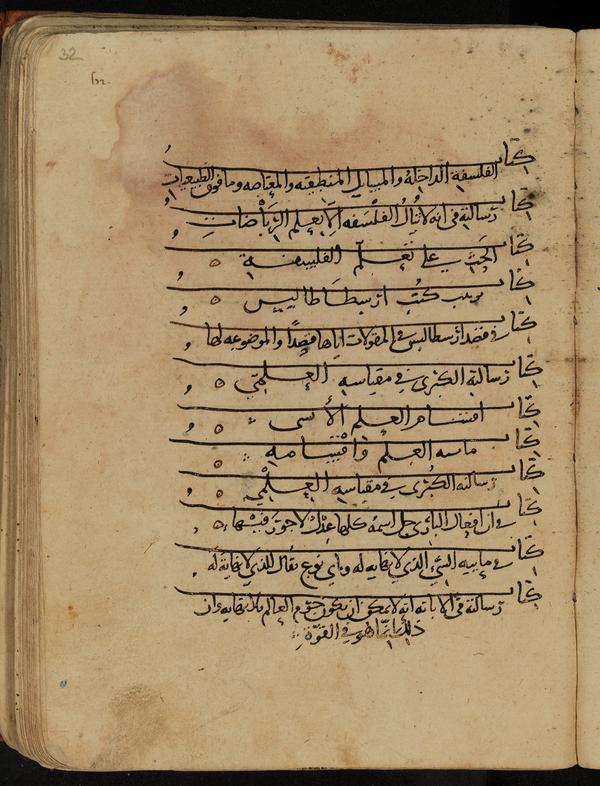 32
كتاب
الفلسفة الداخلة والمسايل المنطقية والمعتاصة وما فوق الطبيعيات
كتاب رسالته في انه لا تنال الفلسفه الا بعلم الرياضيات
كتاب الحث علي تعلم الفلسفة
كتاب ترتيب كتب ارسطاطاليس
كتاب في قصد ارسطاليس في المقولات اياها قصدا والموضوعه لها
كتاب رسالته الكبري في مقياسه العلمي
كتاب اقسام العلم الانسى
كتاب ماييه العلم واقسامه
كتاب رسالته الكبرى في مقياسه العلمي
كتاب في ان افعال الباري جل اسمه كلها عدل لا جور فيها
كتاب في ماييه الشي الذي لا نهايه له وباي نوع يقال للذي لا نهاية له
كتاب رسالته في الابانه انه لا يمكن ان يكون جرم العالم بلا نهايه وان
ذلك انما هو في القوة